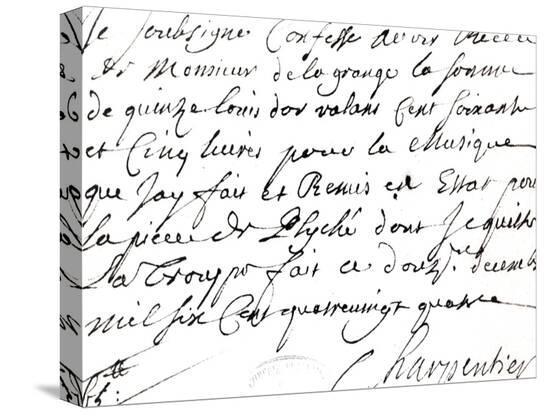 Je soubsigne Confesse avoir Receu
de Monsieur de la grange la somme
de quinze louis dor valans Cent soixante
et Cinq livres pour la Musique
que Jay fait et Remis en Estat pour
la piece de Psyché dont Je quitte
La Troupe fait ce douz.e decemb
mil six Cent quatrevingt quatre
Charpentier